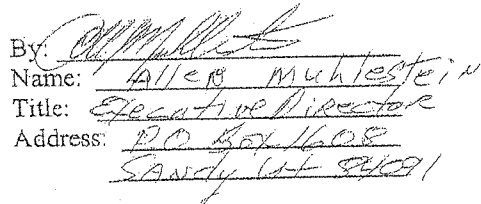 By:
Name: Allen Muhlestein
Title: Executive Director
Address: PO Box 1608
Sandy Ut 84091